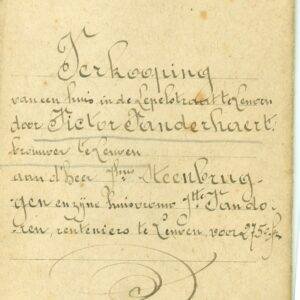 Verkooping
van een huis in de Lepelstraat te Leuven
door Victor Vanderhaert,
brouwer te Leuven
aan d'heer Steenbrug-
gen en zijne huisvrouw Van do-
ren, renteniers te Leuven, voor